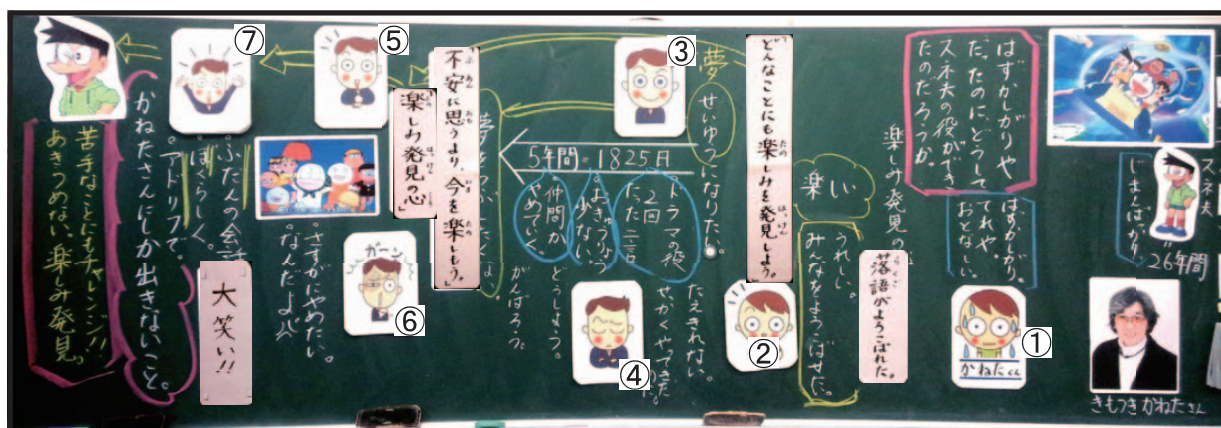 スネ夫
じまんばっかり
26年間
きもつきかねたさん
はずかしがりや
だったのに、どうして
スネ夫の役ができ
たのだろうか。
はずかしがり。
てれや。
おとなしい。
①
かねたくん
楽しみ発見の
落語がよろこばれた。
楽しい
うれしい。
みんなをよろこばせた。
どんなことにも楽しみを発見しよう。
②
夢
せいゆうになりたい。
③
5年間=1825日
ドラマの役
2回
たった二言
おきゅうりょう
少ない
仲間が
やめていく。
たえきれない。
せっかくやってきた
④
どうしよう。
がんばろう。
不安に思うより、今を楽しもう。
「楽しみ発見の心」
⑤
ガーン
⑥
さすがにやめたい。
なんだよ
⑦
ふだんの会話
ぼくらしく。
アドリブで。
大笑い!!
かねたさんにしか出きないこと。
苦手なことにもチャレンジ!!
あきらめない、楽しみ発見。